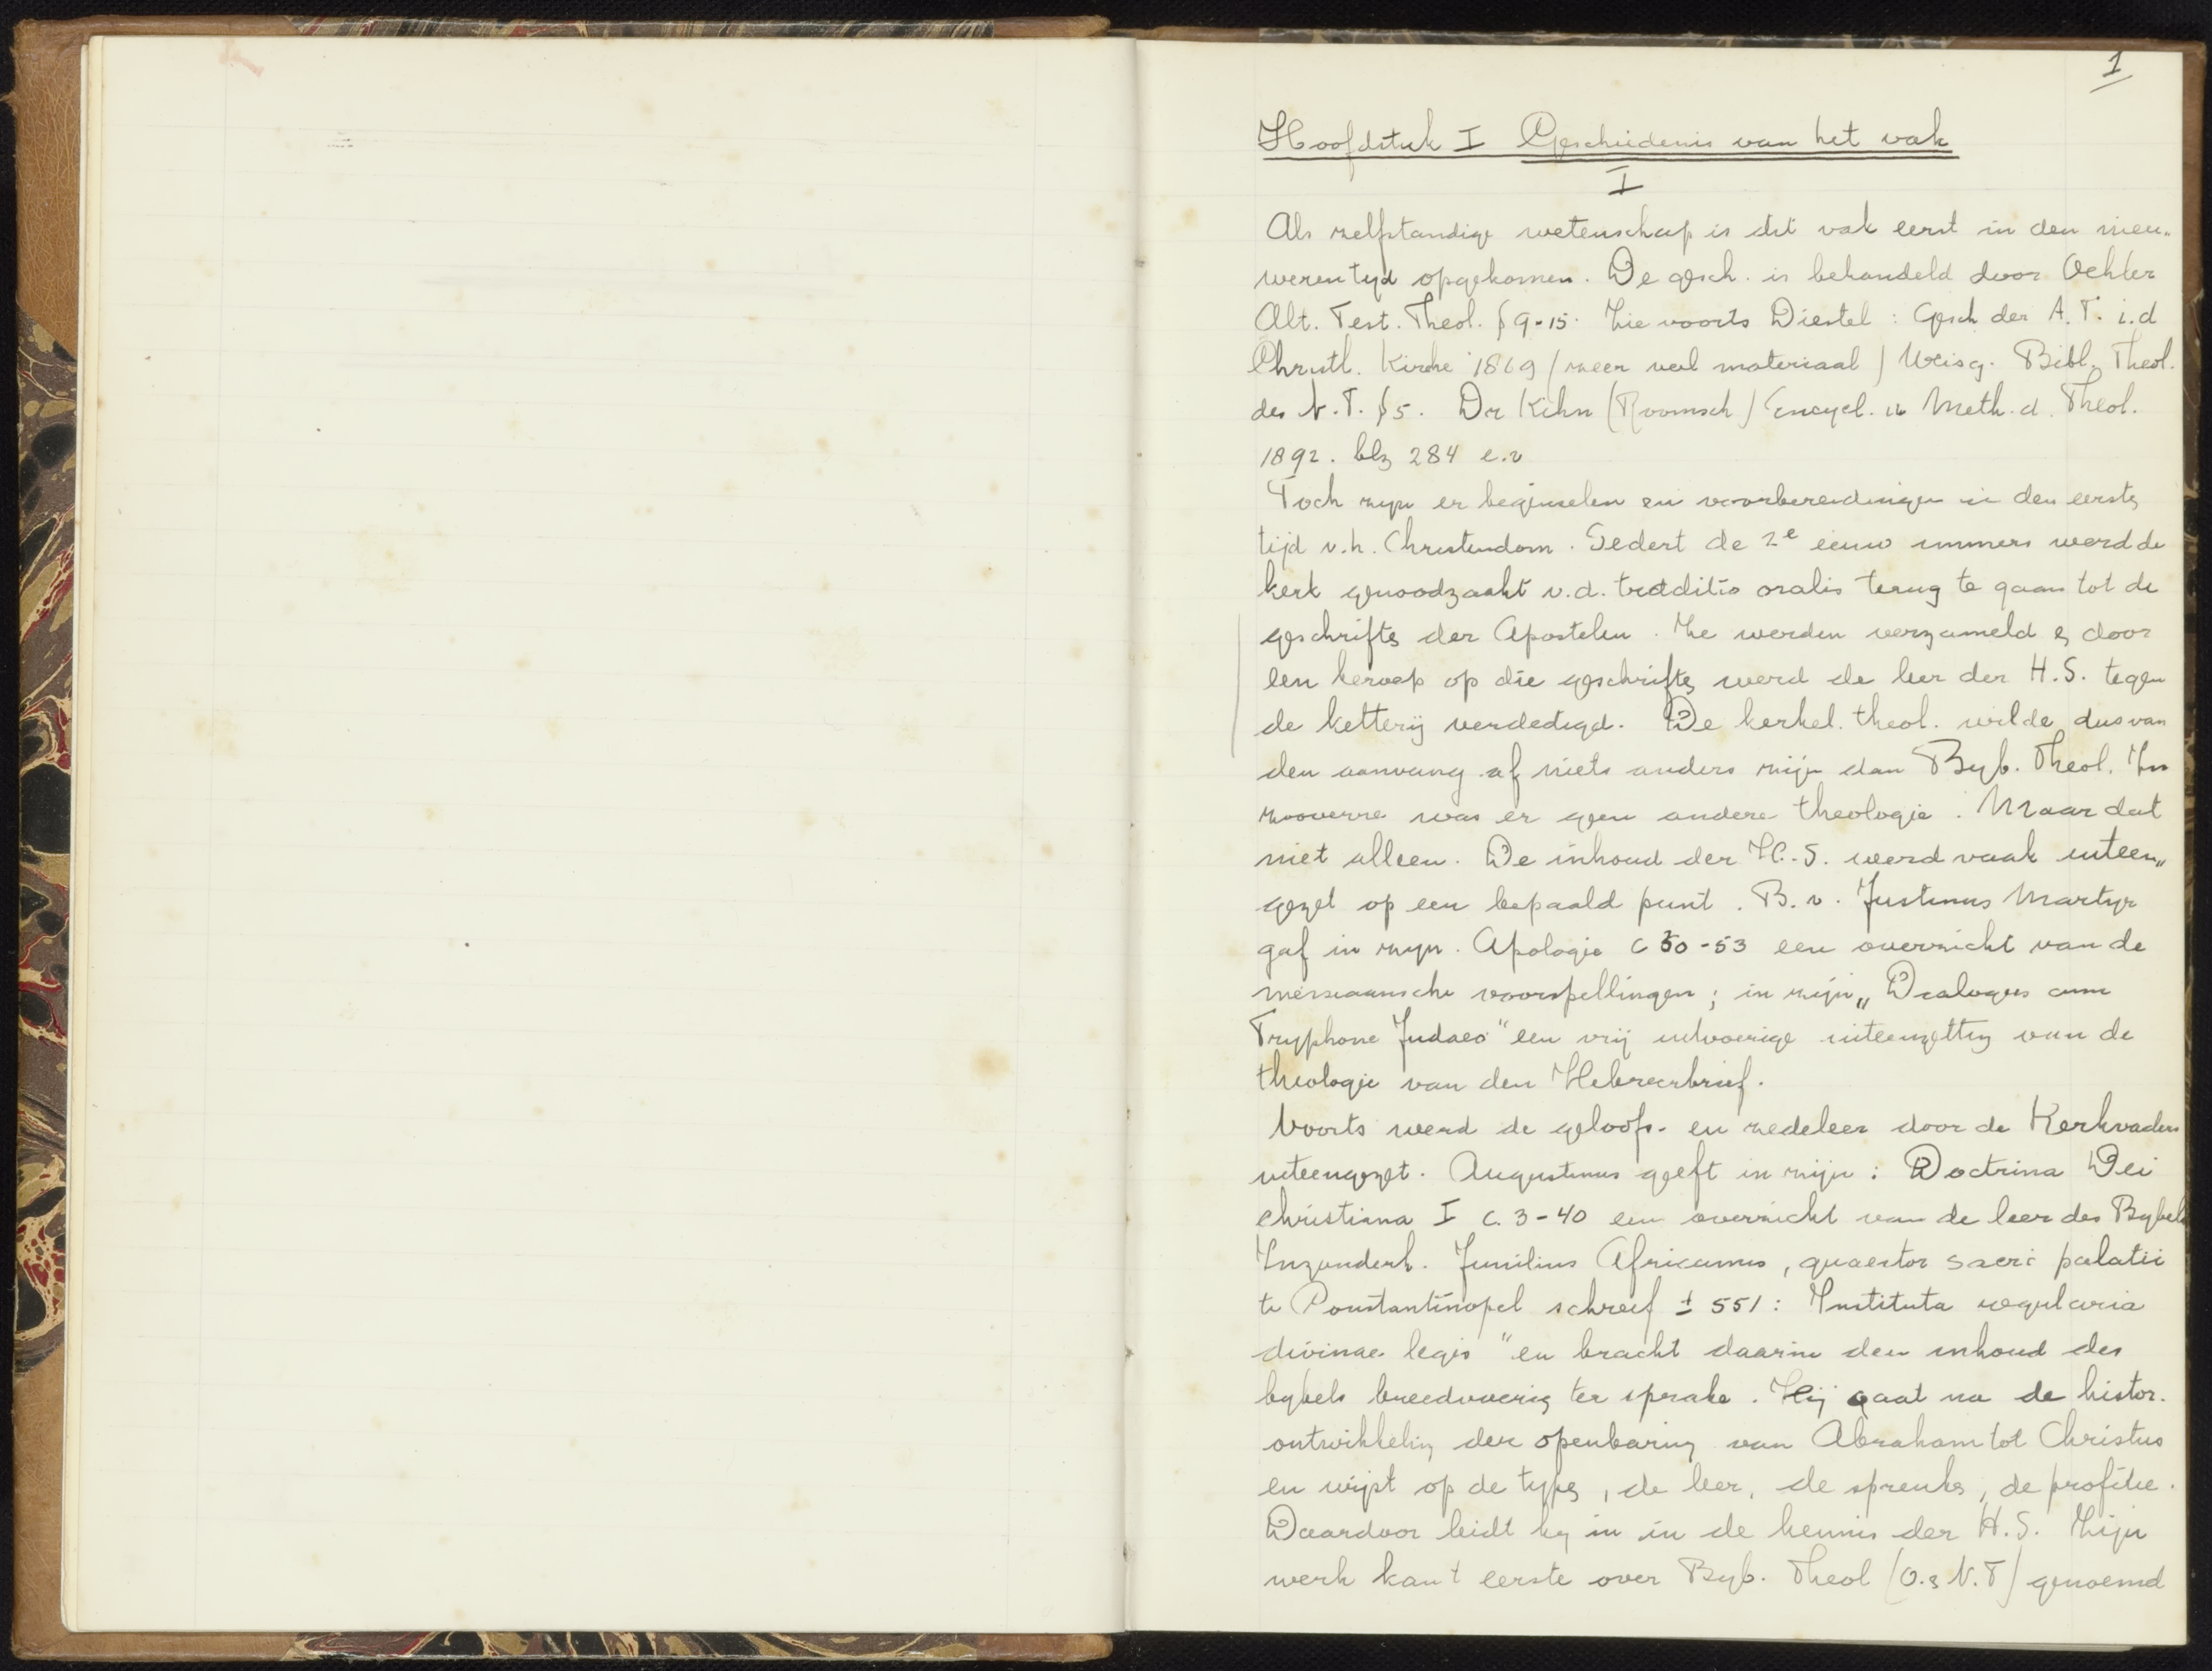 1
Hoofdstuk I Geschiedenis van het vak
I
Als zelfstandige wetenschap is dit vak eerst in den nieu„
weren tyd opgekomen. De gesch. is behandeld door Oehler
Alt. Test. Theol. § 9-15. Zie voorts Diestel : Gesch der A.T. i.d
Christl. Kirche 1869 (zeer veel materiaal) Weisz. Bibl. Theol.
des N.T. § 5. Dr Kihn (Roomsch) Encycl. u Meth. d. Theol.
1892. blz 284 e.v
Toch zyn er beginselen en voorbereidingen in den eerste
tijd v.h. Christendom. Sedert de 2e eeuw immers werd de
kerk genoodzaakt v.d. traditio oralis terug te gaan tot de
geschrifte der Apostelen. Ze werden verzameld e, door
een beroep op die geschrifte werd de leer der H.S. tegen
de ketterij verdedigd. De kerkel. theol. wilde dus van
den aanvang af niets anders zijn dan Byb. Theol. In
zooverre was er geen andere theologie. Maar dat
niet alleen. De inhoud der H.S. werd vaak uiteen„
gezet op een bepaald punt. B.v. Justinus Martyr
gaf in zyn. Apologie C 30-53 een overzicht van de
messiaansche voorspellingen ; in zijn „ Dialogus cum
Tryphone Judaeo" een vrij uitvoerige uiteenzetting van de
theologie van den Hebreerbrief.
Voorts werd de geloofs- en zedeleer door de Kerkvaders
uiteengezet. Augustinus geeft in zijn : Doctrina Dei
christiana I C. 3-40 een overzicht van de leer des Bybels
Inzonderh. Junilius Africanus, quaestor sacri palatii
te Constantinopel schreef ± 551 : Instituta regularia
divinae legis " en bracht daarin den inhoud des
bybels breedvoerig ter sprake. Hij gaat na de histor.
ontwikkeling der openbaring van Abraham tot Christus
en wijst op de types, de leer, de spreuke, de profetie.
Daardoor leidt hy in in de kennis der H.S. Zijn
werk kan t eerste over Byb. Theol (O. e N.T) genoemd